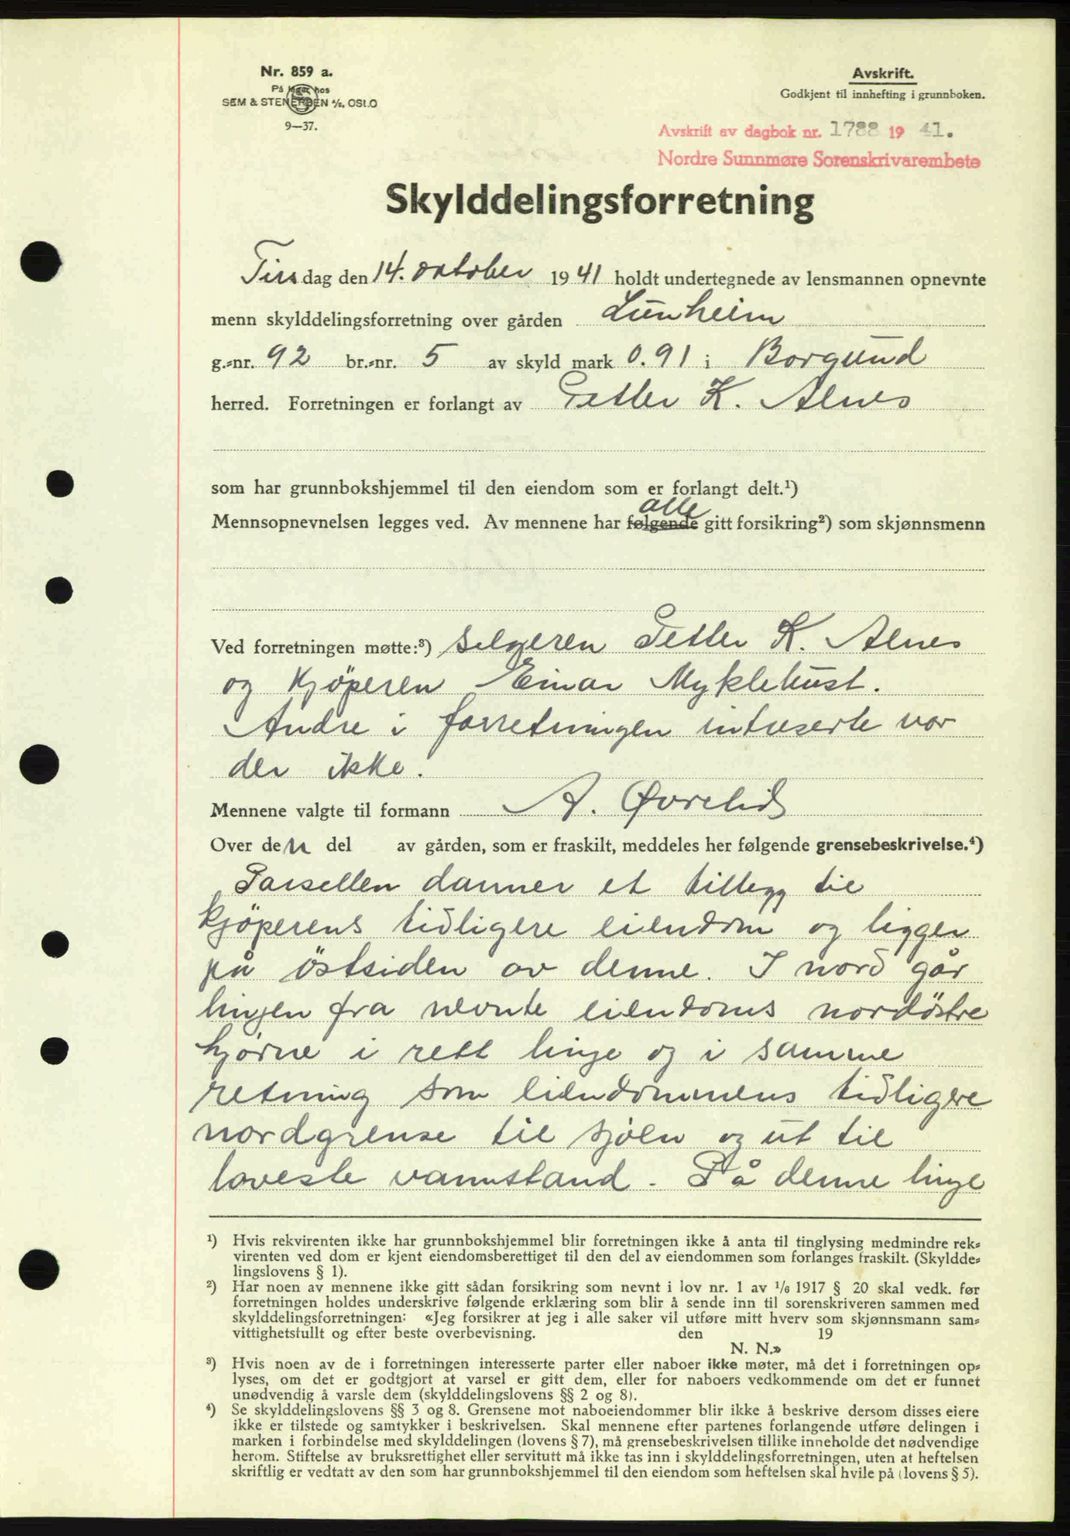 Nr. 859 a.
På lager hos
SEM & STENERSEN A/S, OSLO
9—37.
Avskrift.
Godkjent til innhefting i grunnboken.
Avskrift av dagbok nr. 1788 19 41.
Nordre Sunnmøre Sorenskrivarembete
Skylddelingsforretning
Tirsdag den 14. oktober 1941 holdt undertegnede av lensmannen opnevnte
menn skylddelingsforretning over gården Lunheim
g.-nr. 92 br.-nr. 5 av skyld mark 0.91 i Borgund
herred. Forretningen er forlangt av Petter K. Alnes
som har grunnbokshjemmel til den eiendom som er forlangt delt.¹)
alle
Mennsopnevnelsen legges ved. Av mennene har følgende gitt forsikring²) som skjønnsmenn
Ved forretningen møtte:³) Selgeren Petter K. Alnes
og kjöperen Einar Myklebust.
Andre i forretningen intreserte var
der ikke.
Mennene valgte til formann A. Øvrelid
Over den del av gården, som er fraskilt, meddeles her følgende grensebeskrivelse.⁴)
Parsellen danner et tillegg til
kjöperens tidligere eiendom og ligger
på östsiden av denne. I nord går
linjen fra nevnte eiendoms nordøstre
hjørne i rett linje og i samme
retning som eiendommens tidligere
nordgrense til sjöen og ut til
laveste vannstand. På denne linje
¹) Hvis rekvirenten ikke har grunnbokshjemmel blir forretningen ikke å anta til tinglysing medmindre rek-
virenten ved dom er kjent eiendomsberettiget til den del av eiendommen som forlanges fraskilt. (Skyldde-
lingslovens § 1).
²) Har noen av mennene ikke gitt sådan forsikring som nevnt i lov nr. 1 av 1/6 1917 § 20 skal vedk. før
forretningen holdes underskrive følgende erklæring som blir å sende inn til sorenskriveren sammen med
skylddelingsforretningen: «Jeg forsikrer at jeg i alle saker vil utføre mitt hverv som skjønnsmann sam-
vittighetsfullt og efter beste overbevisning. den 19
N. N.»
³) Hvis noen av de i forretningen interesserte parter eller naboer ikke møter, må det i forretningen op-
lyses, om det er godtgjort at varsel er gitt dem, eller for naboers vedkommende om det er funnet
unødvendig å varsle dem (skylddelingslovens §§ 2 og 8).
⁴) Se skylddelingslovens §§ 3 og 8. Grensene mot naboeiendommer blir ikke å beskrive dersom disses eiere
ikke er tilstede og samtykker i beskrivelsen. Skal mennene efter partenes forlangende utføre delingen i
marken i forbindelse med skylddelingen (lovens § 7), må grensebeskrivelsen tillike inneholde det nødvendige
herom. Stiftelse av bruksrettighet eller servitutt må ikke tas inn i skylddelingsforretningen, uten at heftelsen
skriftlig er vedtatt av den som har grunnbokshjemmel til den eiendom som heftelsen skal hvile på (lovens § 5).